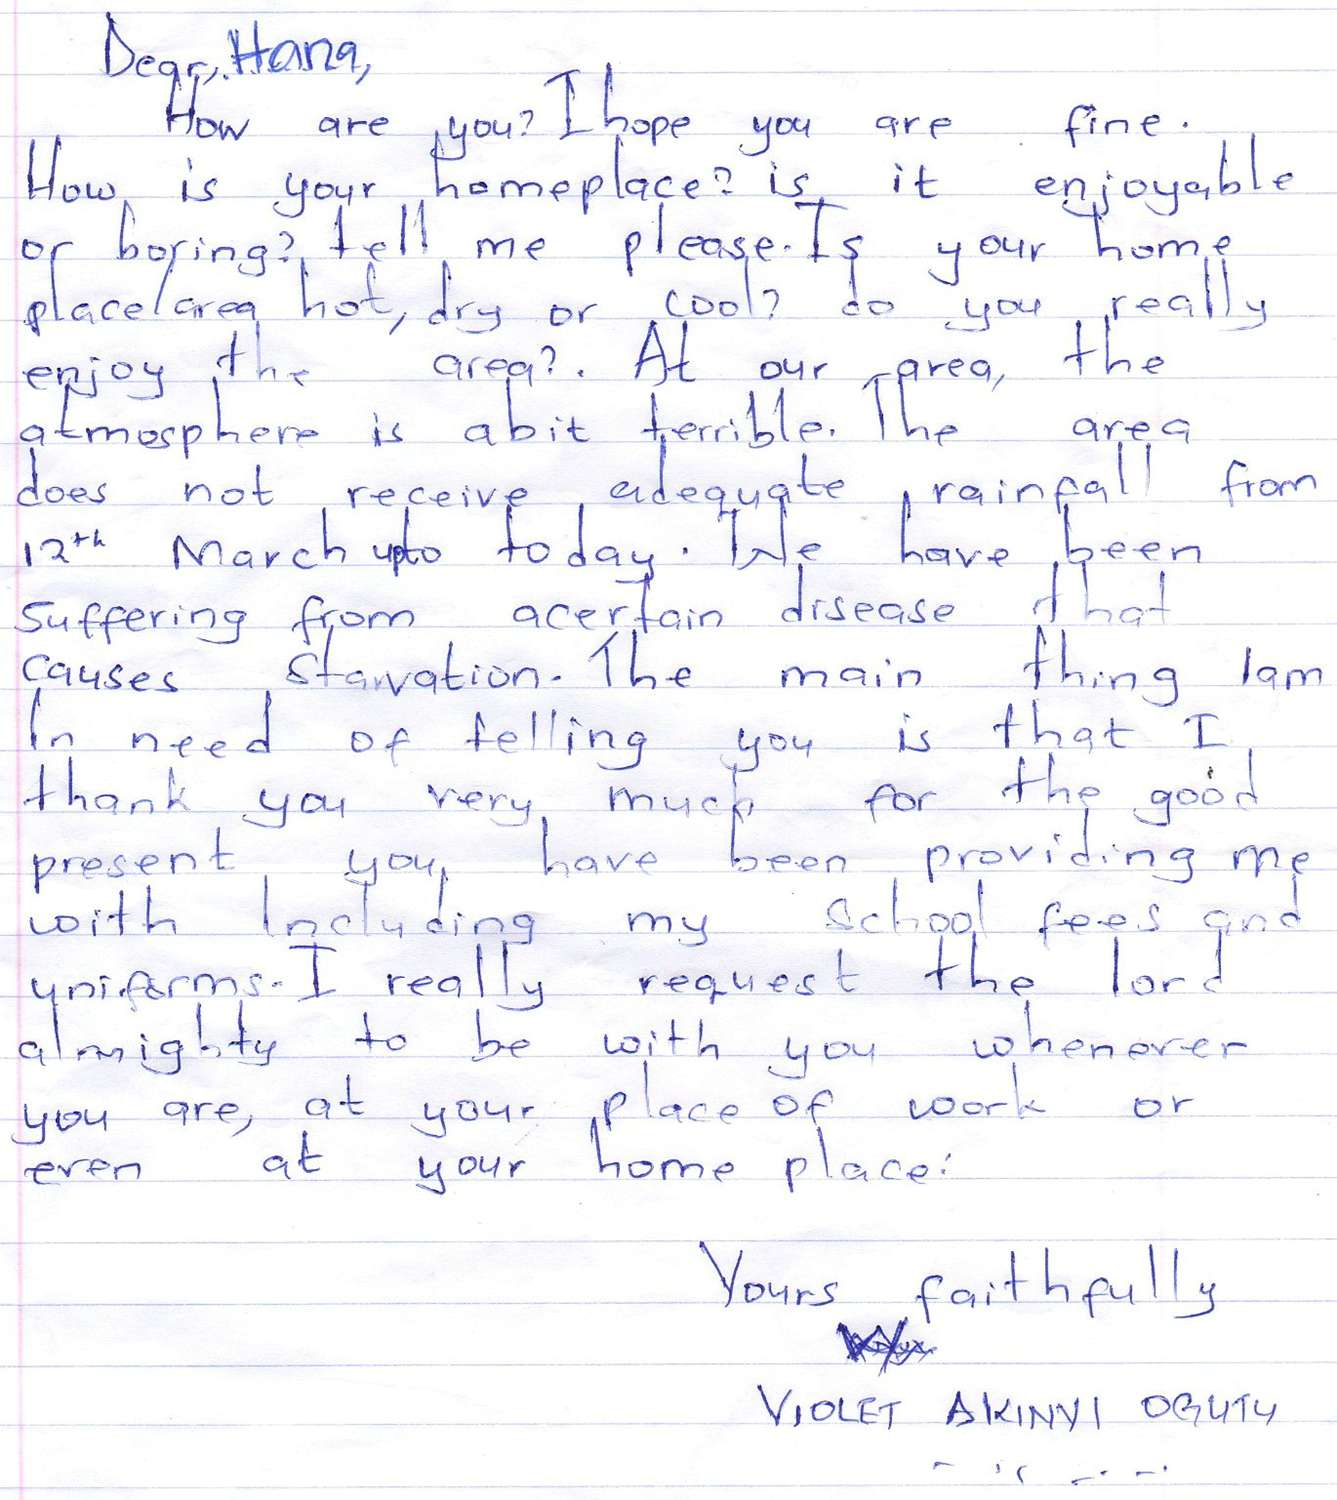 Dear, Hana,
How are you? I hope you are fine.
How is your homeplace? is it enjoyable
or boring? tell me please. Is your home
place/area hot, dry or cool? do you really
enjoy the area?. At our area, the
atmosphere is abit terrible. The area
does not receive adequate rainfall from
12th March upto today. We have been
suffering from acertain disease that
causes starvation. The main thing Iam
In need of telling you is that I
thank you very much for the good
present you have been providing me
with Including my school fees and
uniforms. I really request the lord
almighty to be with you whenever
you are, at your place of work or
even at your home place.
Yours faithfully
VIOLET AKINYI OGUTU